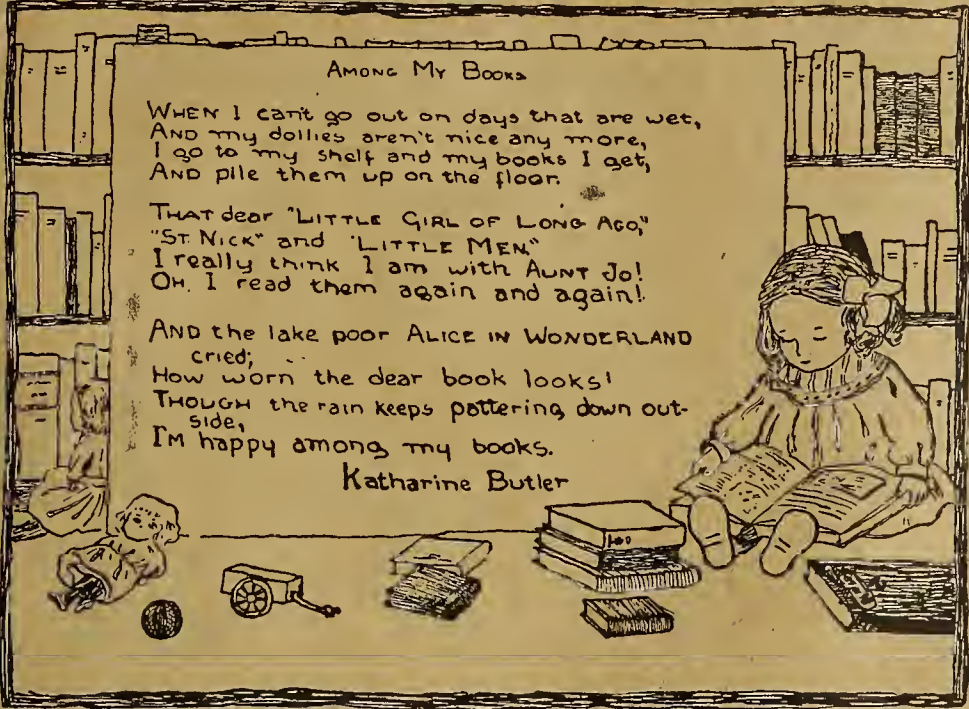 AMONG MY BOOKS
WHEN I can't go out on days that are wet,
AND my dollies aren't nice any more,
I go to my shelf and my books I get,
AND pile them up on the floor.
THAT dear "LITTLE GIRL OF LONG AGO,"
"ST. NICK" and "LITTLE MEN."
I really think I am with AUNT JO!
OH, I read them again and again!
AND the lake poor ALICE IN WONDERLAND
cried;
How worn the dear book looks!
THOUGH the rain keeps pattering down out-
side,
I'M happy among my books.
Katharine Butler